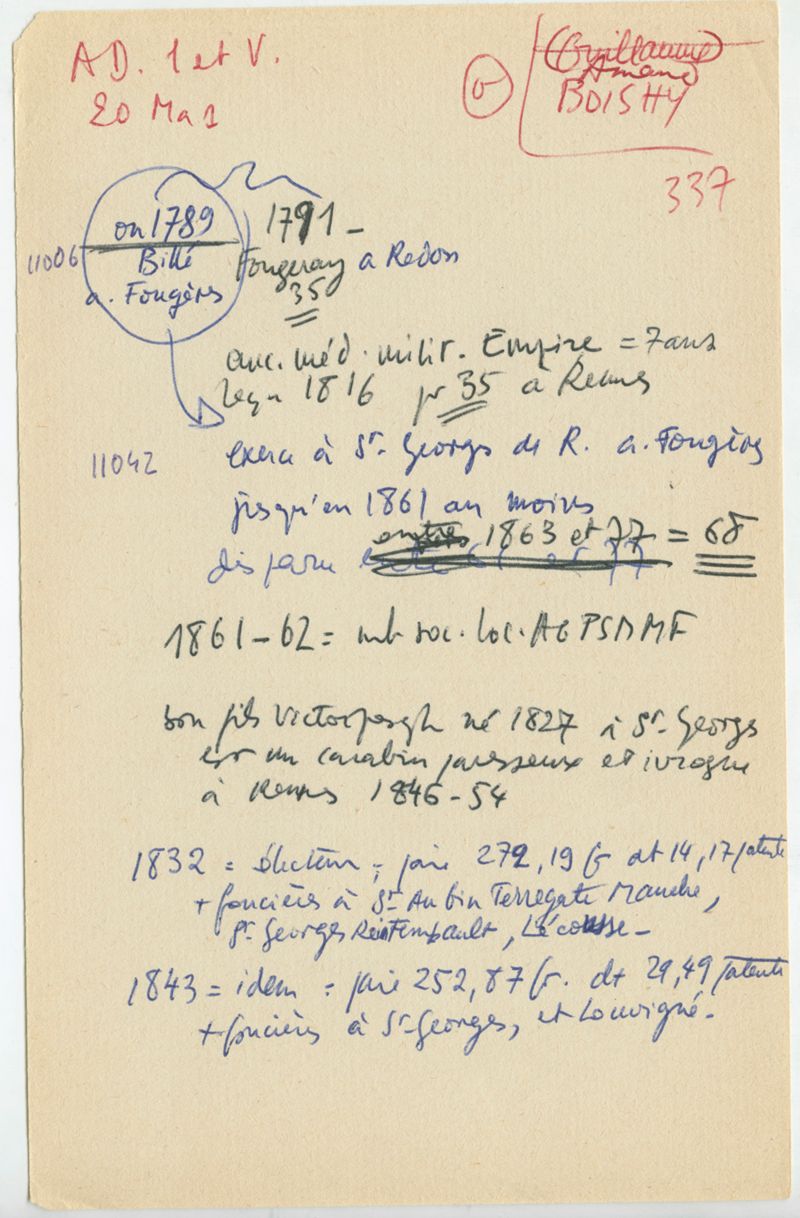 AD. I et V.
20 Ma 1
Guillaume
Amand
BOISHY
337
ou 1789
1791 -
11006
Billé
a. Fougères
Fougeray a Redon
35
anc. méd. milit. Empire = 7 ans
reçu 1816 pr 35 à Rennes
11042
exerce à St-Georges de R. a. Fougères
jusqu'en 1861 au moins
entre 1863 et 77 = 68
disparu entre 61 et 77
1861-62 = mb soc. loc. AGPSDMF
son fils Victor Joseph né 1827 à St-Georges
est un carabin paresseux et ivrogne
à Rennes 1846-54
1832 = électeur = paie 272,19 fr dt 14,17 patente
+ foncières à St Aubin Terregate Manche,
St. Georges Reintembault, Lécousse -
1843 = idem = paie 252,87 fr. dt 29,49 patente
+ foncières à St-Georges, et Louvigné.